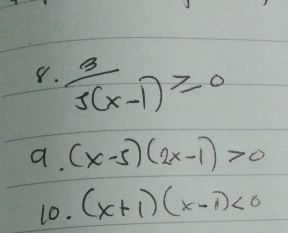 8. 3/5(x-1) ≥ 0
9. (x-5)(2x-1) >0
10. (x+1)(x-1)<0